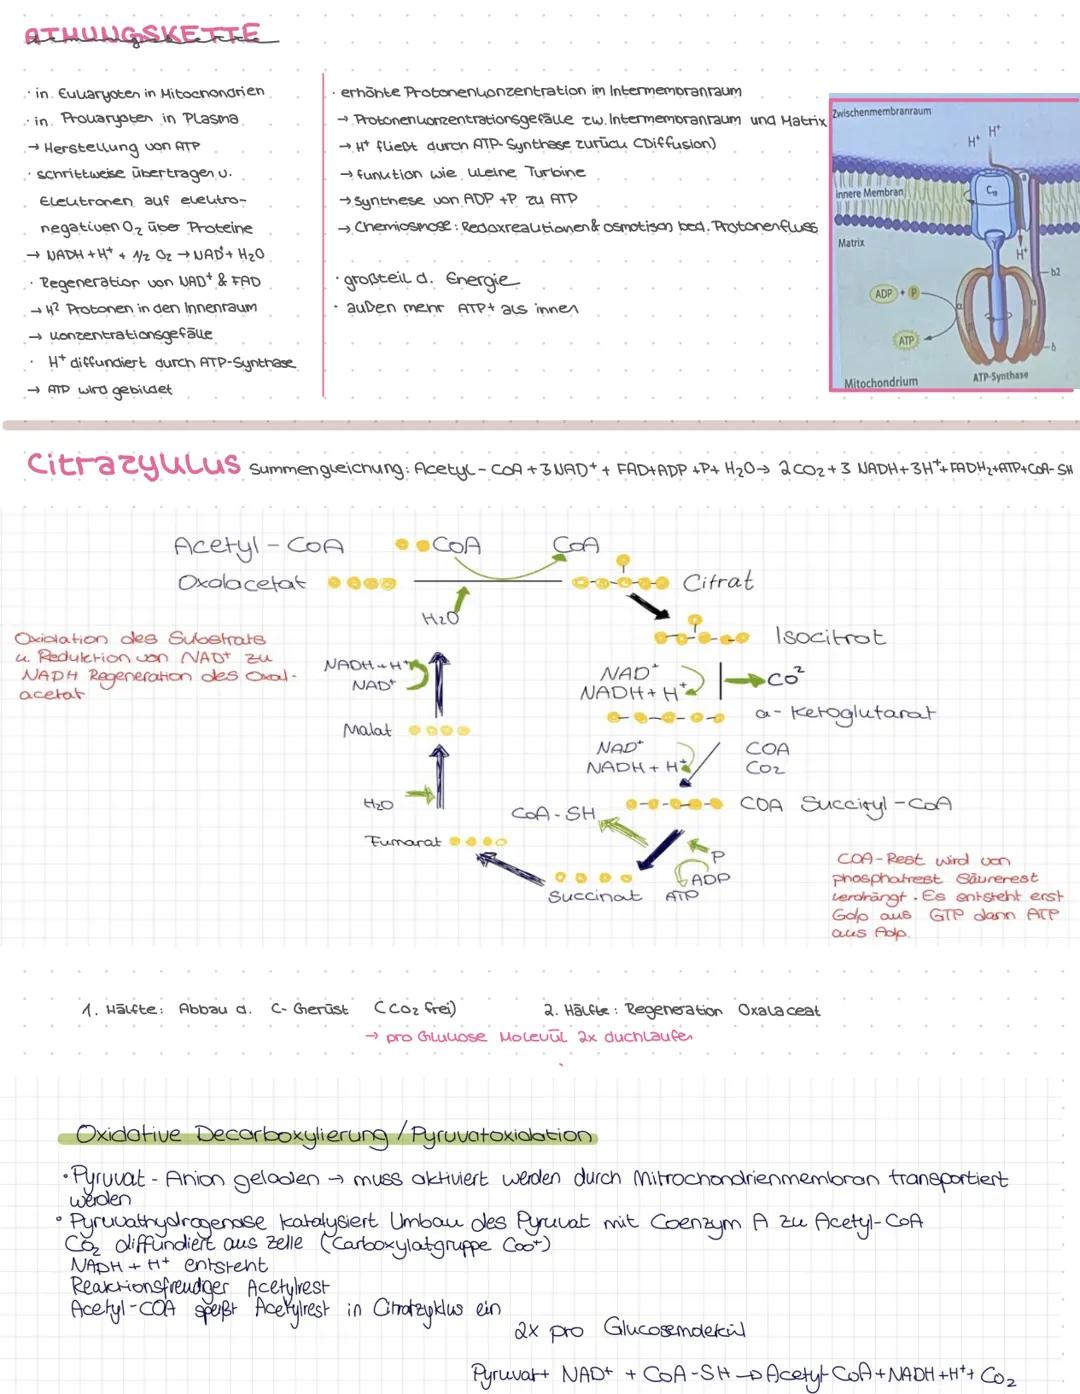 ATMUNGSKETTE
· in Eukaryoten in Mitochondrien
· in Prokaryoten in Plasma
→ Herstellung von ATP
· schrittweise übertragen v.
Elektronen auf elektro-
negativen O₂ über Proteine
→ NADH + H⁺ + 1/2 O₂ → NAD⁺ + H₂O
· Regeneration von NAD⁺ & FAD
→ H² Protonen in den Innenraum
→ Konzentrationsgefälle
· H⁺ diffundiert durch ATP-Synthase
→ ATP wird gebildet
· erhöhte Protonenkonzentration im Intermembranraum
→ Protonenkonzentrationsgefälle zw. Intermembranraum und Matrix
→ H⁺ fließt durch ATP-Synthase zurück (Diffusion)
→ funktion wie kleine Turbine
→ Synthese von ADP + P zu ATP
→ Chemiosmose: Redoxreaktionen & osmotisch bed. Protonenfluss
· großteil d. Energie
· außen mehr ATP+ als innen
Zwischenmembranraum
H⁺ H⁺
innere Membran
Cₙ
a
Matrix
H⁺
b2
ADP + P
α
ATP
b
Mitochondrium
ATP-Synthase
Citrazyklus Summengleichung: Acetyl-CoA + 3 NAD⁺ + FAD+ADP +P+ H₂O → 2CO₂ + 3 NADH+3H⁺+FADH₂+ATP+CoA-SH
Acetyl-CoA CoA CoA
Oxalacetat Citrat
H₂O
Isocitrat
Oxidation des Substrats
u Reduktion von NAD+ zu
NADH Regeneration des Oxal-
acetat
NADH+H⁺
NAD⁺
NAD⁺
NADH + H⁺
CO²
α-Ketoglutarat
Malat
NAD⁺
NADH + H⁺
COA
CO2
H₂O
CoA-SH
COA Succinyl-CoA
Fumarat
P
ADP
ATP
Succinat
COA-Rest wird von
phosphatrest Säurerest
verdrängt. Es entsteht erst
Gdp aus GTP dann ATP
aus Adp.
1. Hälfte: Abbau d. C-Gerüst (CO₂ frei)
2. Hälfte: Regeneration Oxalaceat
→ pro Glukose Molekül 2x duchlaufen
Oxidative Decarboxylierung / Pyruvatoxidation
· Pyruvat-Anion geladen → muss aktiviert werden durch Mitrochondrienmembran transportiert
werden
· Pyruvathydrogenase katalysiert Umbau des Pyruvat mit Coenzym A zu Acetyl-CoA
CO₂ diffundiert aus Zelle (Carboxylatgruppe Coo⁺)
NADH + H⁺ entsteht
Reaktionsfreudger Acetylrest
Acetyl-COA speißt Acetylrest in Citratzyklus ein
2x pro Glucosemolekül
Pyruvat+ NAD⁺ + CoA-SH → Acetyl-CoA+NADH+H⁺+ CO₂